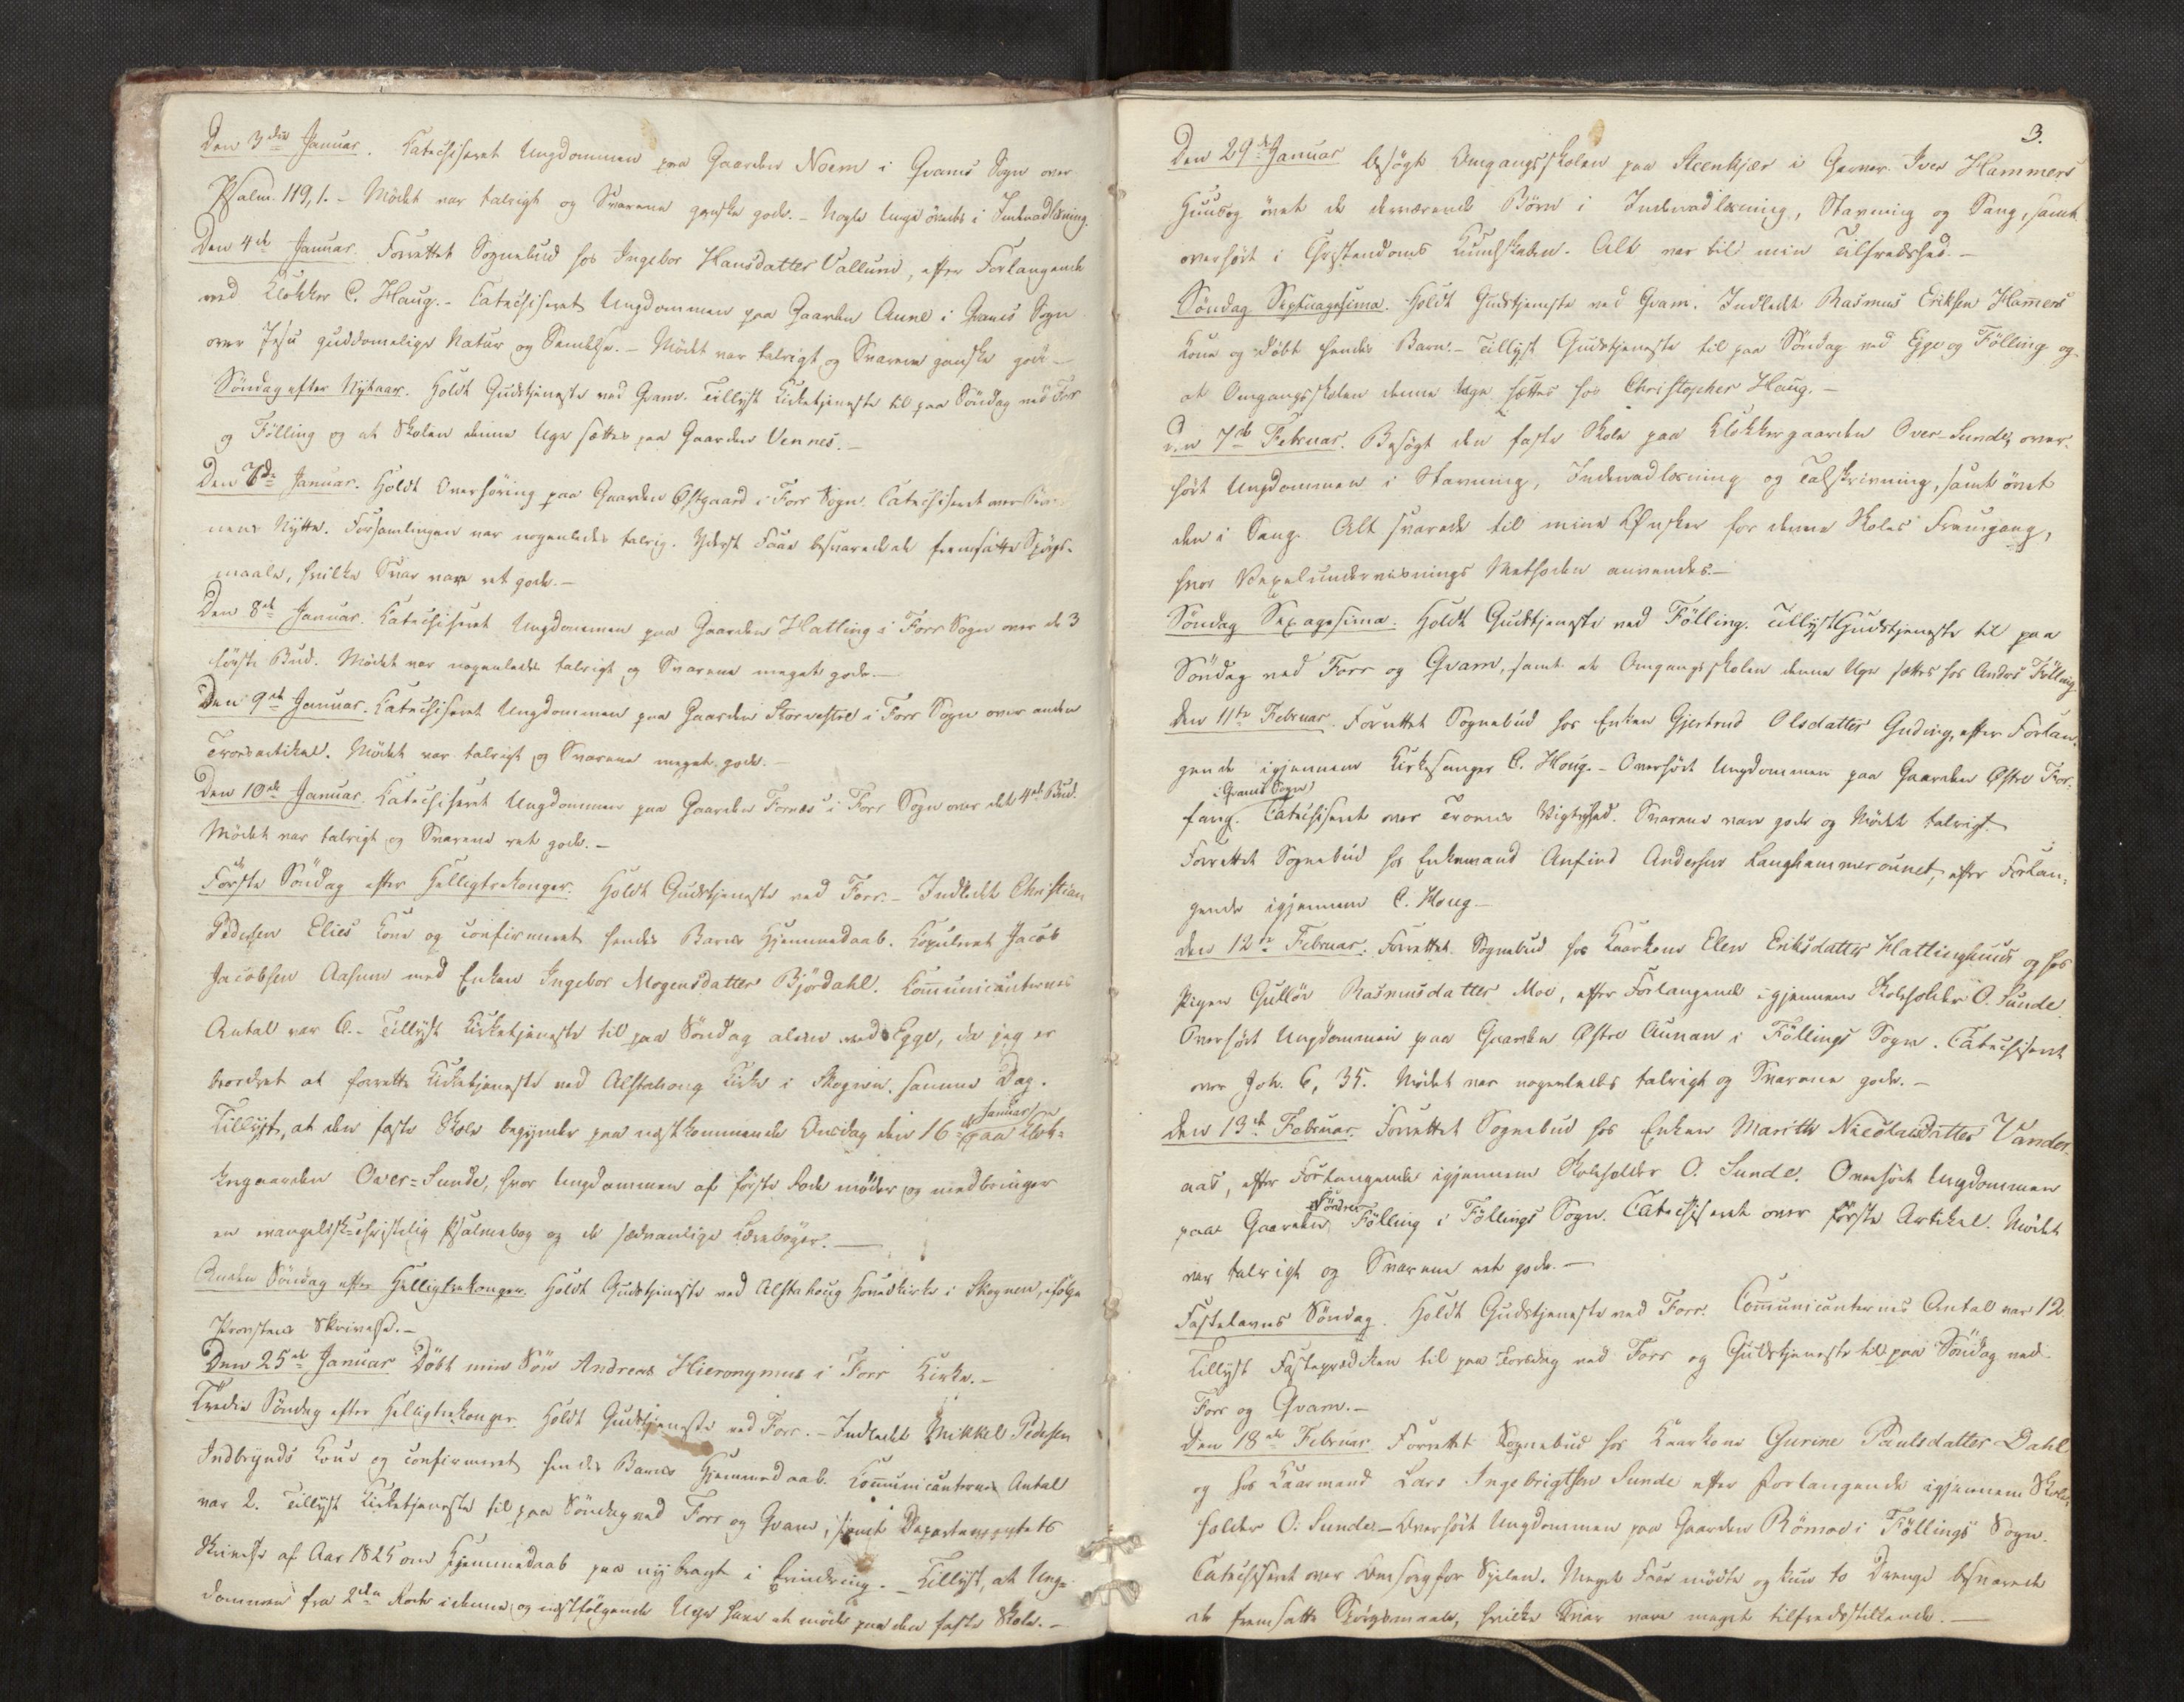 Den 3die Januar. Catechiseret Ungdommen paa Gaarden Noem i Qvams Sogn over
Psalm. 119,1. - Mödet var talrigt og Svarene ganske gode. - Nogle Unge övedes i Indenadlæsning.
Den 4de Januar. Forrettet Sognebud hos Ingebor Hansdatter Vallund, efter Forlangende
ved Klokker C. Haug. - Catechiseret Ungdommen paa Gaarden Aune i Qvams Sogn
over Jesu guddomelige Natur og . - Mödet var talrigt og Svarene ganske gode -
Söndag efter Nytaar. Holdt Gudstjeneste ved Qvam. Tillyst Kirketjeneste til paa Söndag ved For
og Fölling og at Skolen denne Uge sættes paa Gaarden Vennes. -
Den 7de Januar. Holdt Overhöring paa Gaarden Østgaard i Forr Sogn. Catechiseret over Bön-
nens Nytte. Forsamlingen var nogenledes talrig. Yderst Faae besvarede de fremsatte Spörgs-
maale, hvilke Svar vare ret gode. -
Den 8de Januar. Catechiseret Ungdommen paa Gaarden Hatling i Forr Sogn over de 3
förste Bud. Mödet var nogenledes talrigt og Svarene meget gode. -
Den 9de Januar. Catechiseret Ungdommen paa Gaarden Storvestre i Forr Sogn over anden
Troesartikel. Mödet var talrigt og Svarene meget gode. -
Den 10de Januar. Catechiseret Ungdommen paa Gaarden Fornes i Forr Sogn over det 4de Bud.
Mödet var talrigt og Svarene ret gode. -
Förste Söndag efter Helligtrekonger. Holdt Gudstjeneste ved Forr. - Indledt Christian
Pedersen Elies Kone og confirmeret hendes Barns Hjemmedaab. Kopuleret Jacob
Jacobsen Aasum med Enken Ingebor Mogensdatter Björdahl. Communicanternes
Antal var 6. - Tillyst Kirketjeneste til paa Söndag alene ved Egge, da jeg er
beordret at forrette Kirketjeneste ved Alstahoug Kirke i Skogn samme Dag.
Tillyst, at den faste Skole begynder paa næstkommende Onsdag den 16de Januar paa Klok-
kergaarden Over-Sunde, hvor Ungdommen af förste Rode möder og medbringer
en evangelisk-christelig Psalmebog og de sædvanlige Læreböger. -
Anden Söndag efter Helligtrekonger. Holdt Gudstjeneste ved Alstahoug Hovedkirke i Skognen, ifölge
Provstens Skrivelse. -
Den 25de Januar Döbt min Sön Andreas Hieronymus i Forr Kirke. -
Tredie Söndag efter Helligtrekonger. Holdt Gudstjeneste ved Forr. - Indledt Mikkel Pedersen
Indbrynds Kone og confirmeret hendes Barns Hjemmedaab. Communicanternes Antal
var 2. Tillyst Kirketjeneste til paa Söndag ved Forr og Qvam, samt Departementets
Skrivelse af Aar 1825 om Hjemmedaab paa ny bragt i Erindring. - Tillyst, at Ung-
dommen fra 2den Rode i denne og næstfölgende Uge have at möde paa den faste Skole. -
3.
Den 29de Januar besögt Omgangsskolen paa Steenkjær i Garver Iver Hammers
Huus og övet de derværende Börn i Indenadlæsning, Stavning og Sang, samt
overhört i Christendoms Kundskaben. Alt var til min Tilfredshed. -
Söndag Septuagesima. Holdt Gudstjeneste ved Qvam. Indledt Rasmus Eriksen Hamers
Kone og döbt hendes Barn. - Tillyst Gudstjeneste til paa Söndag ved Egge og Fölling og
at Omgangsskolen denne Uge sættes hos Christopher Haug. -
Den 7de Februar. Besögt den faste Skole paa Klokkergaarden Over-Sunde, over-
hört Ungdommen i Stavning, Indenadlæsning og Talskrivning, samt övet
den i Sang. Alt svarede til mine Ønsker for denne Skoles Fremgang,
hvor Vexelundervisnings Methoden anvendes. -
Söndag Sexagesima. Holdt Gudstjeneste ved Fölling. Tillyst Gudstjeneste til paa
Söndag ved Forr og Qvam, samt at Omgangsskolen denne Uge sættes hos Anders Fölling
Den 11te Februar. Forrettet Sognebud hos Enken Gjertrud Olsdatter Guding, efter Forlan-
gende igjennem Kirkesanger C. Houg. - Overhört Ungdommen paa Gaarden Østre For-
i Qvams Sogn
fang. Catechiseret over Troens Vigtighed. Svarene vare gode og Mödet talrigt. -
Forrettet Sognebud hos Enkemand Anfind Andersen Langhammerounet, efter Forlan-
gende igjennem C. Houg -
Den 12te Februar. Forrettet Sognebud hos Kaarkone Elen Eriksdatter Hattinghuus og hos
Pigen Gullör Rasmusdatter Moe, efter Forlangende igjennem Skoleholder O. Sunde.
Overhört Ungdommen paa Gaarden Østre Aunan i Föllings Sogn. Catechiseret
over Joh. 6, 35. Mödet var nogenledes talrigt og Svarene gode. -
Den 13de Februar. Forrettet Sognebud hos Enken Marith Nicolaisdatter Vander-
aas, efter Forlangende igjennem Skoleholder O. Sunde. Overhört Ungdommen
paa Gaarden Nördre Fölling i Föllings Sogn. Catechiseret over förste Artikel. Mödet
var talrigt og Svarene ret gode. -
Fastelavns Söndag. Holdt Gudstjeneste ved Forr. Communicanternes Antal var 12.
Tillyst Fasteprædiken til paa Torsdag ved Forr og Gudstjeneste til paa Söndag ved
Forr og Qvam. -
Den 18de Februar. Forrettet Sognebud hos Kaarkone Gurine Paulsdatter Dahl
og hos Kaarmand Lars Ingebrigtsen Sunde efter Forlangende igjennem Skole-
holder O. Sunde - Overhört Ungdommen paa Gaarden Römoe i Föllings Sogn.
Catechiseret over Omsorg for Sjelen. Meget Faae mödte og kun to Drenge besvarede
de fremsatte Spörgsmaale, hvilke Svar vare meget tilfredsstillende. -